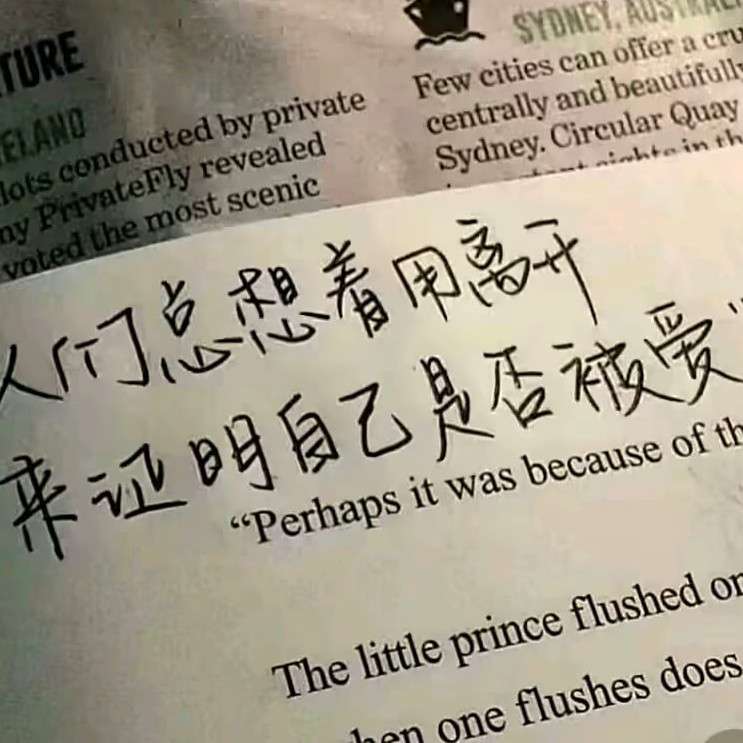 SYDNEY, AUSTRAL
Few cities can offer a cru
centrally and beautifully
Sydney. Circular Quay
sights in th
TURE
ELAND
lots conducted by private
ny PrivateFly revealed
voted the most scenic
人们总想着用离开
来证明自己是否被爱"
“Perhaps it was because of th
The little prince flushed on
hen one flushes does